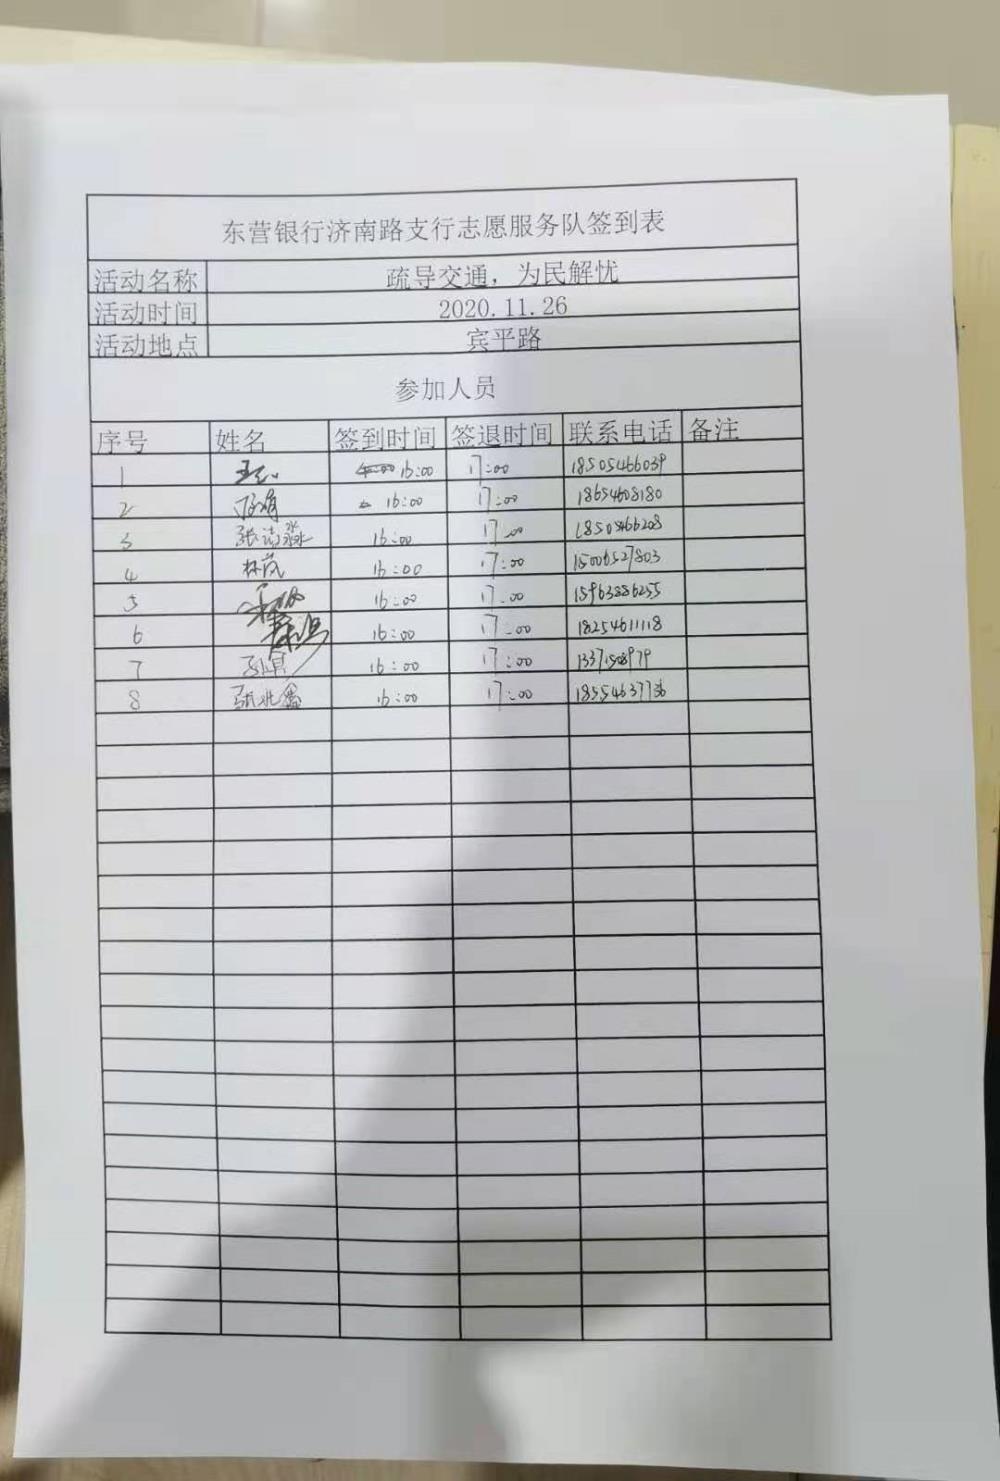 东营银行济南路支行志愿服务队签到表
活动名称 疏导交通，为民解忧
活动时间 2020.11.26
活动地点 宾平路
参加人员
序号 姓名 签到时间 签退时间 联系电话 备注
1 16:00 17:00 18505466039
2 16:00 17:00 18654608180
3 16:00 17:00 18505466208
4 林岚 16:00 17:00 15006527803
5 16:00 17:00 15963886255
6 16:00 17:00 18254611118
7 16:00 17:00
8 16:00 17:00 18554637736